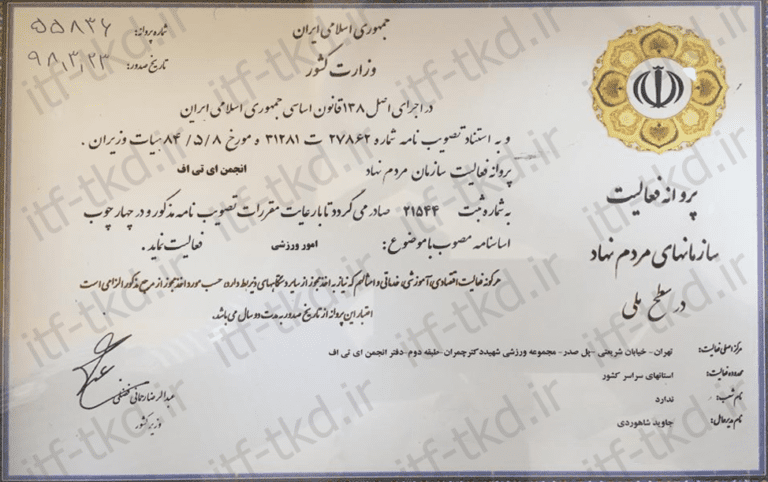 جمهوری اسلامی ایران
وزارت کشور
شماره پروانه: ۵۵۸۳۶
تاریخ صدور: ۹۸,۳,۲۳
در اجرای اصل ۱۳۸ قانون اساسی جمهوری اسلامی ایران
و به استناد تصویب نامه شماره ۲۷۸۶۲ ت ۳۱۲۸۱ ه مورخ ۸۴/۵/۸ هیات وزیران .
پروانه فعالیت سازمان مردم نهاد انجمن ای تی اف
به شماره ثبت ۲۱۵۴۴ صادر می گردد تا با رعایت مقررات تصویب نامه مذکور و در چهارچوب
اساسنامه مصوب با موضوع : امور ورزشی فعالیت نماید .
هرگونه فعالیت اقتصادی، آموزشی، خدماتی و امثالهم که نیاز به اخذ مجوز از سایر دستگاههای ذیربط دارد، حسب مورد اخذ مجوز از مرجع مذکور الزامی است
اعتبار این پروانه از تاریخ صدور به مدت دو سال می باشد.
عبدالرضا رحمانی فضلی
وزیر کشور
پروانه فعالیت
سازمانهای مردم نهاد
در سطح ملی
مرکز اصلی فعالیت: تهران- خیابان شریعتی -پل صدر- مجموعه ورزشی شهید دکتر چمران-طبقه دوم -دفتر انجمن ای تی اف
محدوده فعالیت: استانهای سراسر کشور
نام شعب: ندارد
نام مدیرعامل: جاوید شاهوردی
itf-tkd.ir